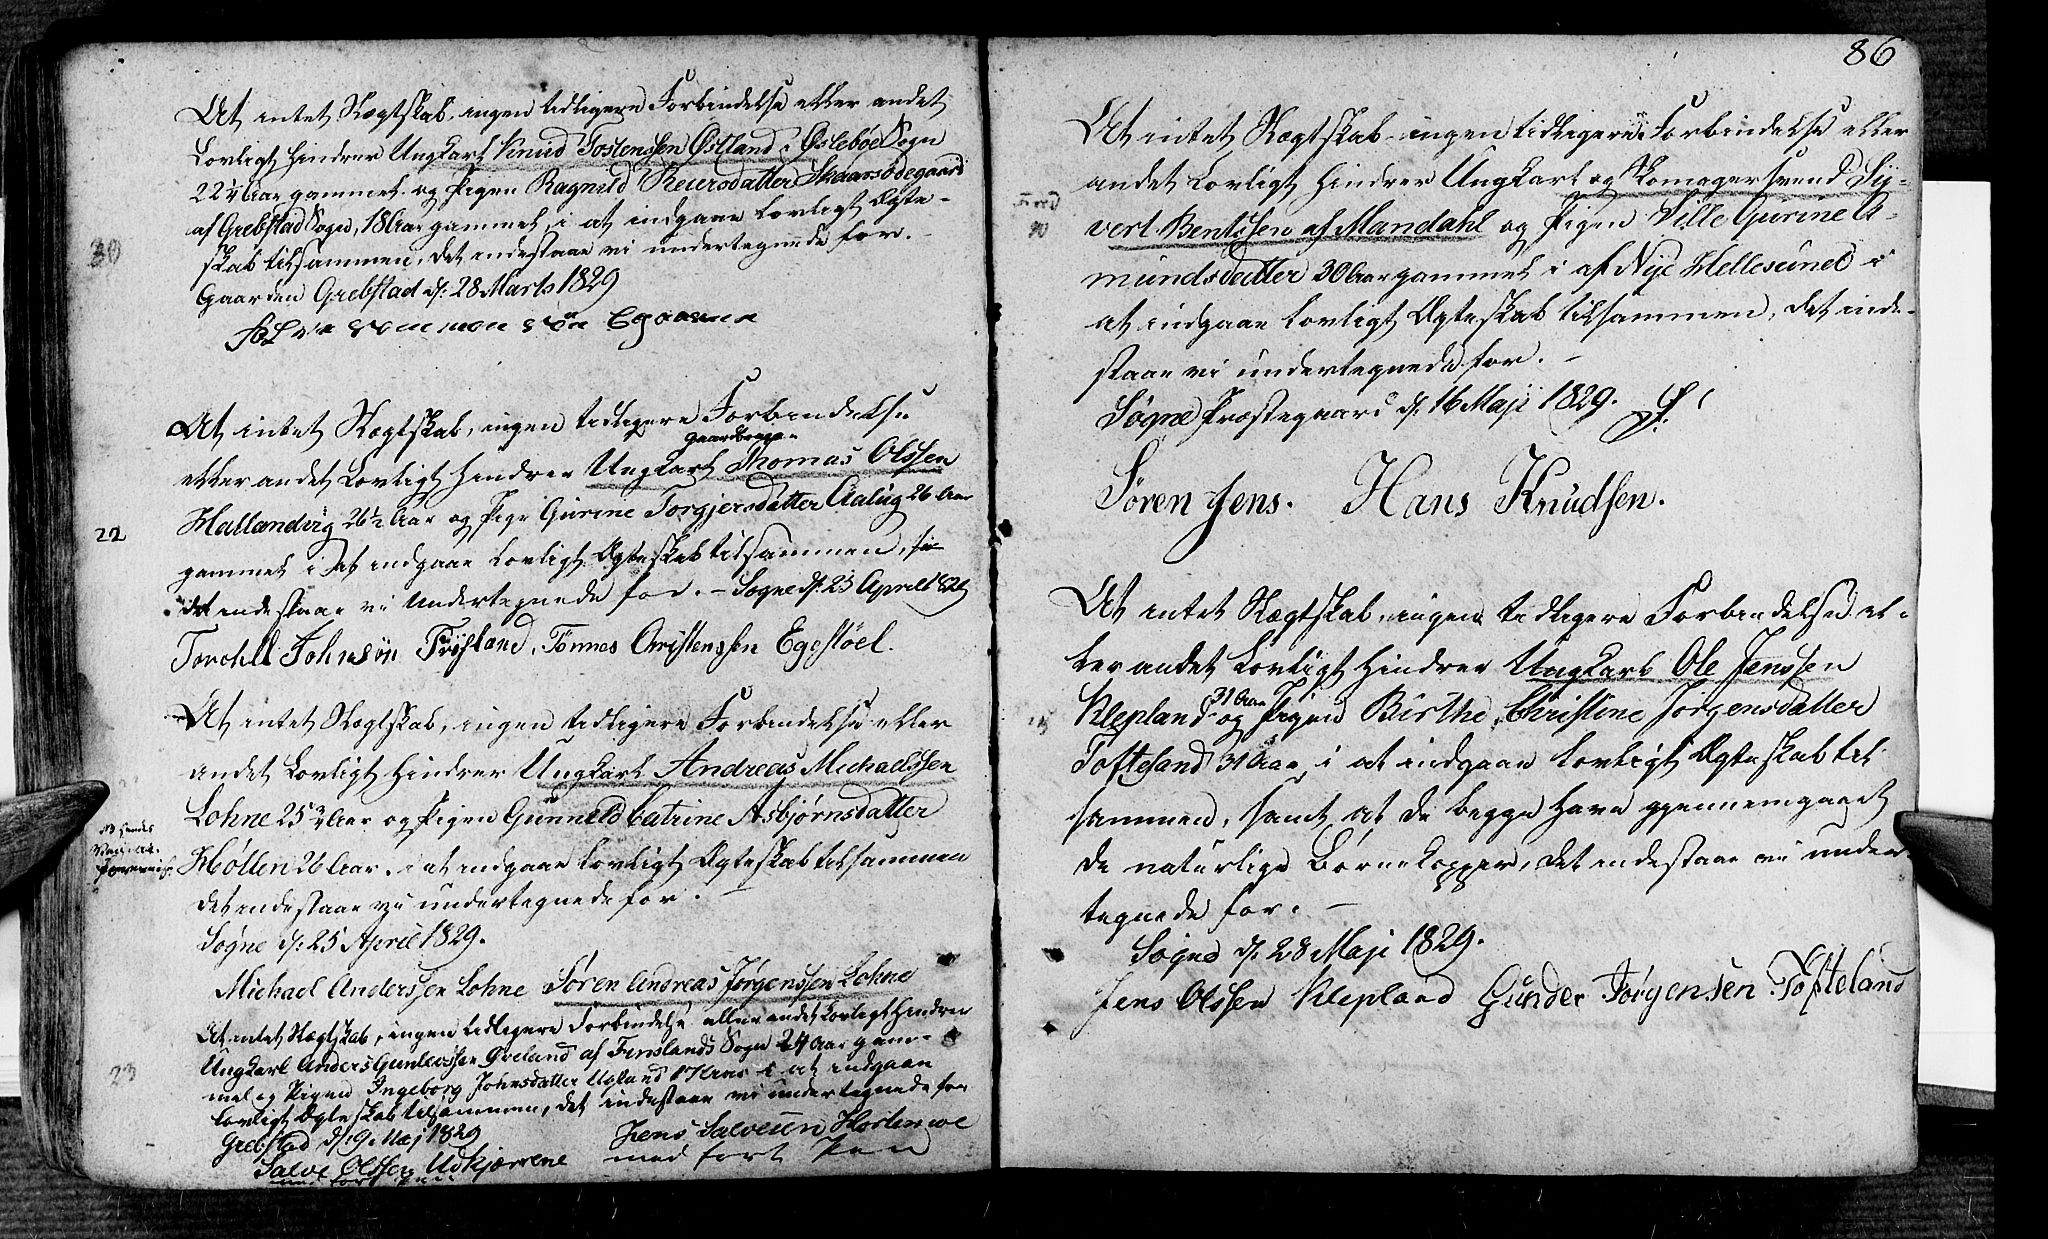 At intet Slægtskab, ingen tidligere Forbindelse eller andet
Lovligt hindrer Ungkarl Knud Tostenssen Østland i Øslebøe Sogn
22 1/4 Aar gammel og Pigen Ragnild
af Grebstad Sogn, 18 Aar gammel, i at indgaae Lovligt Ægte-
skab tilsammen, det indestaae vi undertegnede for.
30
Gaarden Grebstad d: 28 Marts 1829
At intet Slægtskab, ingen tidligere Forbindelse
eller andet Lovligt hindrer Ungkarl Thomas Olssen
Hallandvig 26 1/2 Aar og Pige Gurine Torgjersdatter Aalug 26 Aar
22
gammel i at indgaae Lovligt Ægteskab tilsammen,
det indestaae vi Undertegnede for. - Sogne d: 25 April 1829
Johnsøn, Tønnes Christenssen Egestøel.
At intet Slægtskab, ingen tidligere Forbindelse eller
andet Lovligt hindrer Ungkarl Andreas Michaelssen
Lohne 25 3/4 Aar og Pigen Gunneld Catrine Asbjørnsdatter
Høllen 26 Aar, i at indgaae Lovligt Ægteskab tilsammen
det indestaae vi undertegnede for.
Søgne d: 25 April 1829.
Michael Anderssen Lohne Søren Andreas Jørgenssen Lohne
At intet Slægtskab, ingen tidligere Forbindelse eller andet Lovligt hindrer
Ungkarl Anders Gunlegssen Øveland af Finslands Sogn 24 Aar gam-
mel og Pigen Ingeborg Johnsdatter Ugland 17 Aar i at indgaae
23
Lovligt Ægteskab tilsammen, det indestaae vi undertegnede for
Grebstad d: 9 Maj 1829
Jens Salvesen
Salve Olssen Udkjærrene
med fort Pen
86
At intet Slægtskab, ingen tidligere Forbindelse eller
andet Lovligt hindrer Ungkarl og Skomagersvend Sig-
vert Bentssen af Mandahl og Pigen Ville Gurine A-
mundsdatter 30 Aar gammel i af Nye Hellesund i
at indgaae Lovligt Ægteskab tilsammen, det inde-
staae vi undertegnede for. -
Søgne Præstegaard d: 16 Maji 1829.
Søren Jens. Hans Knudsen.
At intet Slægtskab, ingen tidligere Forbindelse el-
ler andet Lovligt hindrer Ungkarl Ole Jenssen
Klepland 31 Aar og Pigen Birthe Christine Jørgensdatter
Tofteland 31 Aar, i at indgaae Lovligt Ægteskab til
sammen, samt at de begge have gjennemgaaet
de naturlige Børnekopper, det indestaae vi under-
tegnede for. -
Søgne d: 28 Maji 1829.
Jens Olssen Klepland Gunder Jørgensen Tofteland